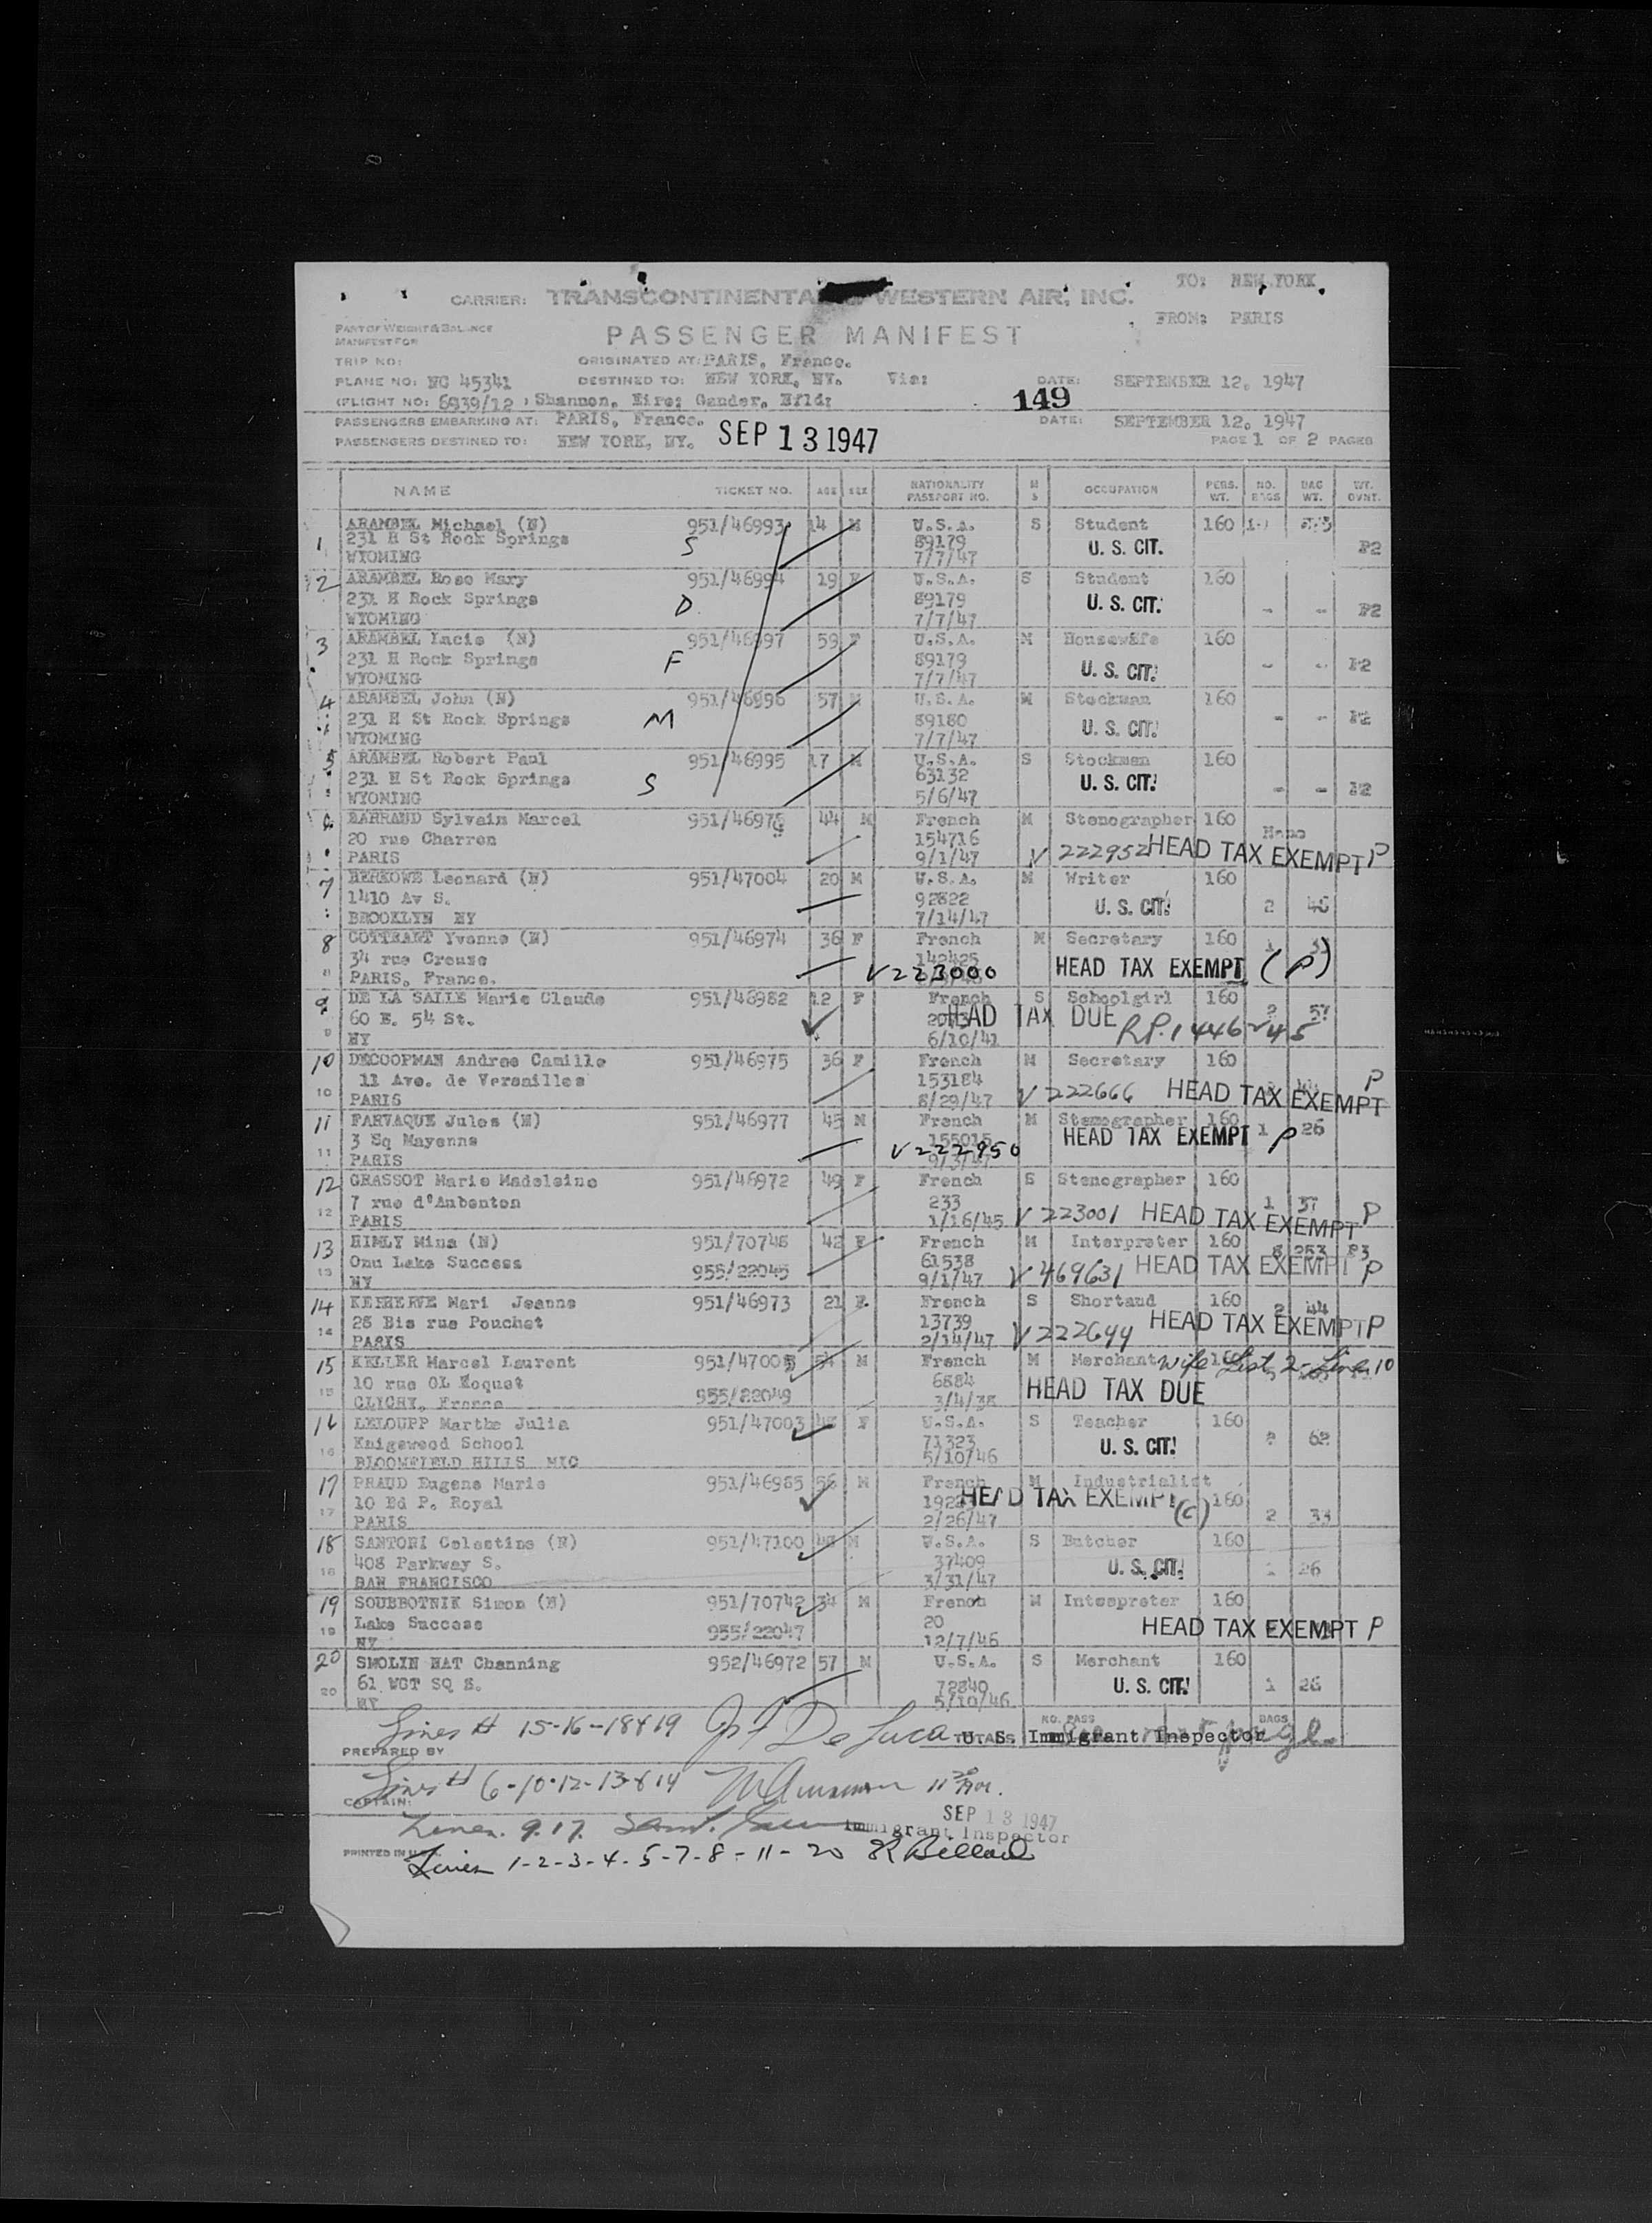 TO: NEW YORK
CARRIER: TRANSCONTINENTAL WESTERN AIR, INC.
FROM: PARIS
PART OF WEIGHT & BALANCE
MANIFEST FOR
PASSENGER MANIFEST
TRIP NO:
ORIGINATED AT: PARIS, France.
PLANE NO: NC 45341 DESTINED TO: NEW YORK, NY. Via: DATE: SEPTEMBER 12, 1947
(FLIGHT NO: 6939/12 ) Shannon, Eire; Gander, Nfld; 149
PASSENGERS EMBARKING AT: PARIS, France. DATE: SEPTEMBER 12, 1947
PASSENGERS DESTINED TO: NEW YORK, NY. SEP 13 1947 PAGE 1 OF 2 PAGES
NAME TICKET NO. AGE SEX NATIONALITY PASSPORT NO. M S OCCUPATION PERS. WT. NO. BAGS BAG WT. WT. OVNT.
1 ARAMBEL Michael (N) 951/46993 14 M U.S.A. S Student 160
231 H St Rock Springs S 89179 U. S. CIT.
WYOMING 7/7/47 P2
2 ARAMBEL Rose Mary 951/46994 19 F U.S.A. S Student 160
231 H Rock Springs D 89179 U. S. CIT.
WYOMING 7/7/47 - - P2
3 ARAMBEL Lucie (N) 951/46997 59 F U.S.A. M Housewife 160
231 H Rock Springs F 89179 U. S. CIT.
WYOMING 7/7/47 - - P2
4 ARAMBEL John (N) 951/46996 57 M U.S.A. M Stockman 160
231 H St Rock Springs M 89180 U. S. CIT.
WYOMING 7/7/47 - - P2
5 ARAMBEL Robert Paul 951/46995 17 M U.S.A. S Stockman 160
231 H St Rock Springs S 63132 U. S. CIT.
WYOMING 5/6/47 - - P2
6 BARRAUD Sylvain Marcel 951/46976 44 M French M Stenographer 160
20 rue Charron 154716
PARIS 9/1/47 V 222952 HEAD TAX EXEMPT P
7 BERKOWE Leonard (N) 951/47004 20 M U.S.A. M Writer 160
1410 Av S. 92822 U. S. CIT. 2 46
BROOKLYN NY 7/14/47
8 COTTRANT Yvonne (N) 951/46974 36 F French M Secretary 160
34 rue Creuse 142425
PARIS, France. V 223000 HEAD TAX EXEMPT (P)
9 DE LA SALLE Marie Claude 951/46982 12 F French S Schoolgirl 160
60 E. 54 St. HEAD TAX DUE 2 57
NY 6/10/41 R.P. 1446245
10 DECOOPMAN Andree Camille 951/46975 36 F French M Secretary 160
11 Ave. de Versailles 153184 P
PARIS 8/29/47 V 222666 HEAD TAX EXEMPT
11 FARVAQUE Jules (N) 951/46977 45 M French M Stenographer 160
3 Sq Mayenne 155015 HEAD TAX EXEMPT P 1 26
PARIS V 222950
12 GRASSOT Marie Madeleine 951/46972 49 F French S Stenographer 160
7 rue d'Aubenton 233 1 37
PARIS 1/16/45 V 223001 HEAD TAX EXEMPT P
13 HIMLY Mina (N) 951/70748 42 F French M Interpreter 160
Onu Lake Success 955/22045 61538 8 253 P3
NY 9/1/47 V 469631 HEAD TAX EXEMPT P
14 KERHERVE Mari Jeanne 951/46973 21 F French S Shortand 160
28 Bis rue Pouchet 13739 2 44
PARIS 2/14/47 V 222644 HEAD TAX EXEMPT P
15 KELLER Marcel Laurent 951/47005 54 M French M Merchant wife List 2 - Line 10
10 rue GL Roquet 6884
CLICHY, France 955/22049 3/4/38 HEAD TAX DUE
16 LELOUPP Marthe Julia 951/47003 48 F U.S.A. S Teacher 160
Knigswood School 71323 U. S. CIT. 2 62
BLOOMFIELD HILLS MIC 5/10/46
17 PRAUD Eugene Marie 951/46985 56 M French M Industrialist
10 Bd P. Royal HEAD TAX EXEMPT (C) 160
PARIS 2/26/47 2 33
18 SANTONI Celestine (N) 951/47100 M U.S.A. S Butcher 160
408 Parkway S. 37409 U. S. CIT. 1 26
SAN FRANCISCO 3/31/47
19 SOUBBOTNIK Simon (N) 951/70742 34 M French M Intespreter 160
Lake Success 955/22047 20
NY 12/7/46 HEAD TAX EXEMPT P
20 SMOLIN NAT Channing 952/46972 57 M U.S.A. S Merchant 160
61 WGT SQ S. 72840 U. S. CIT. 1 26
NY 5/10/46
NO. PASS BAGS
Lines # 15-16-18 & 19 De Luca TOTALS U. S. Immigrant Inspector
PREPARED BY
Lines # 6-10-12-13 & 14
CAPTAIN:
SEP 13 1947
Lines. 9. 17. Immigrant Inspector
PRINTED IN
Lines 1-2-3-4-5-7-8-11-20